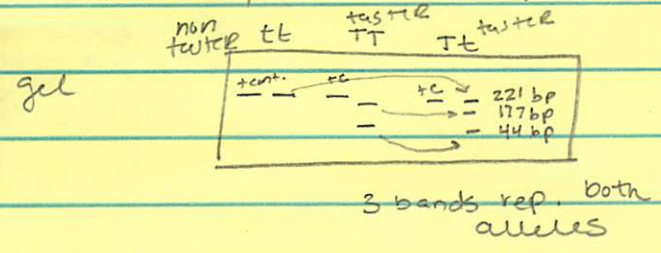 non taster tt
taster TT
Tt taster
gel
+cont. +c +c 221 bp
177 bp
44 bp
3 bands rep. both
alleles